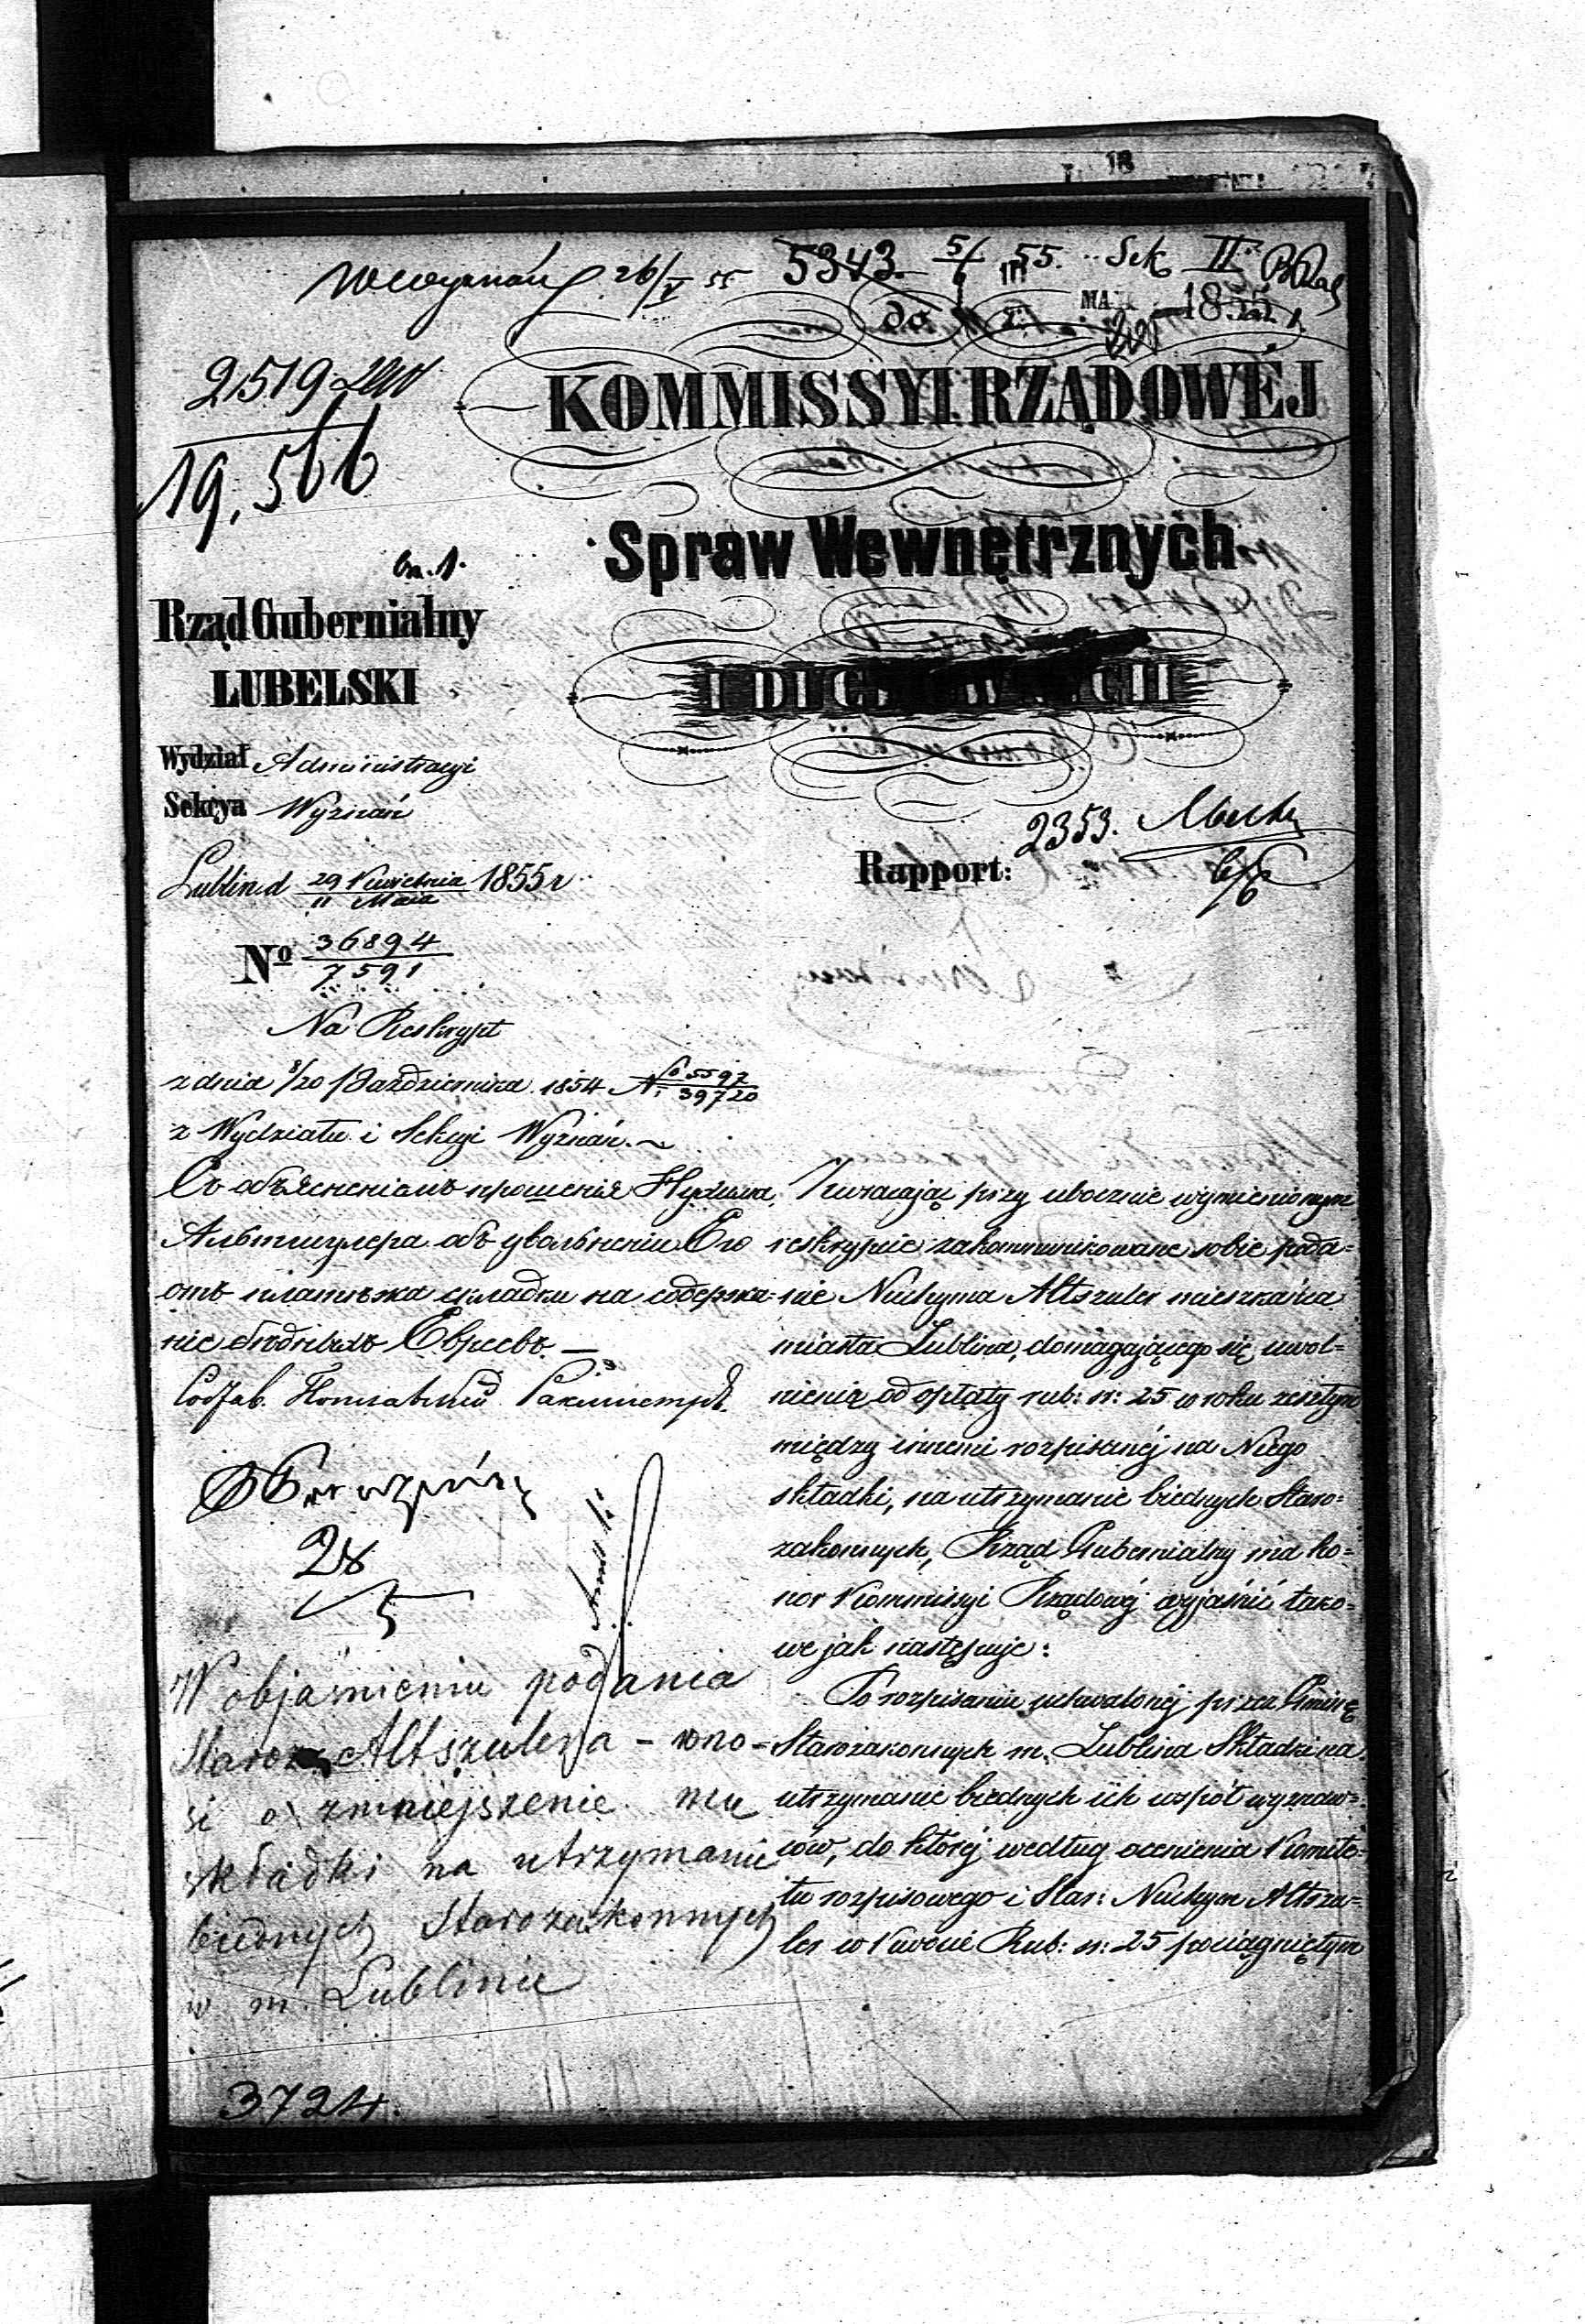 W Wyznań 26/V 55 5343. 5/6 55. Sek II.
do
MA 1855
2519
19,566
KOMMISSYI RZĄDOWÉJ
Spraw Wewnętrznych
I DUCHOWNYCH
Rząd Gubernialny
LUBELSKI
Wydział Administracyi
Sekcya Wyznań
Lublin d 29 Kwietnia / 11 Maia 1855 r
No 36894 / 7591
2353.
6/6
Rapport:
Na Reskrypt
z dnia 8/20 Października 1854 N: 65597 / 39720
z Wydziału i Sekcyi Wyznań.~
Съ объясненіемъ прошенія Нухима
Альтшулера объ увольненіи Его
отъ платежа складки на содержа=
ніе бѣдныхъ Евреевъ. —
28
5
W objaśnieniu podania
Staroz Altszulera – wno-
si o zmniejszenie mu
składki na utrzymanie
biednych Starozakonnych
w m. Lublinie
3724.
Zwracając przy ubocznie wymienionym
reskrypcie zakommunikowane sobie poda=
nie Nuchyma Altszuler mieszkańca
miasta Lublina, domagającego się uwol=
nienia od opłaty rub: sr: 25 w roku zeszłym
między innemi rozpisanéj na Niego
składki, na utrzymanie biednych Staro=
zakonnych, Rząd Gubernialny ma ho=
nor Kommissyi Rządowéj wyjaśnić tako=
we jak następuje:
Po rozpisaniu uchwalonéj przez Gminę
Starozakonnych m. Lublina Składki na
utrzymanie biednych ich współ wyznaw=
ców, do któréj według ocenienia Komite=
tu rozpisowego i Star: Nuchym Altszu=
ler w Kwocie Rub: sr: 25 pociągniętym